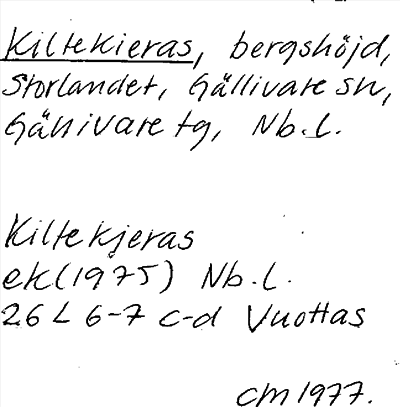 Kiltekieras, bergshöjd,
Storlandet, Gällivare sn,
Gällivare tg, Nb.l.
Kiltekjeras
ek(1975) Nb.l.
26L 6-7 c-d Vuottas
CM 1977.